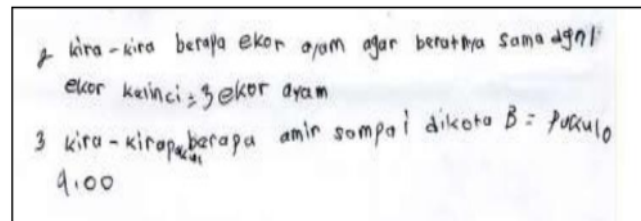 2 kira-kira berapa ekor ayam agar beratnya sama dgn 1
ekor kelinci = 3 ekor ayam
3 kira-kira pukul berapa amir sampai dikota B = pukul
9.00